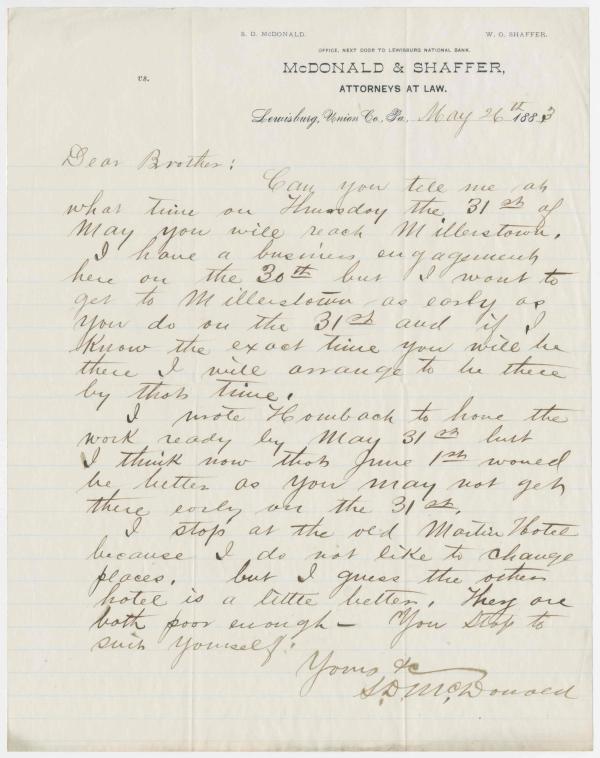 S. D. McDONALD.
W. O. SHAFFER.
OFFICE, NEXT DOOR TO LEWISBURG NATIONAL BANK.
McDONALD & SHAFFER,
vs.
ATTORNEYS AT LAW.
Lewisburg, Union Co., Pa., May 26th 1883
Dear Brother;
Can you tell me at
what time on Thursday the 31st of
May you will reach Millerstown.
I have a business engagement
here on the 30th but I want to
get to Millerstown as early as
you do on the 31st and if I
know the exact time you will be
there I will arrange to be there
by that time.
I wrote Homback to have the
work ready by May 31st but
I think now that June 1st would
be better as you may not get
there early on the 31st.
I stop at the old Martin Hotel
because I do not like to change
places. but I guess the other
hotel is a little better. They are
both poor enough — You stop to
suit yourself.
Yours &c
S.D. McDonald